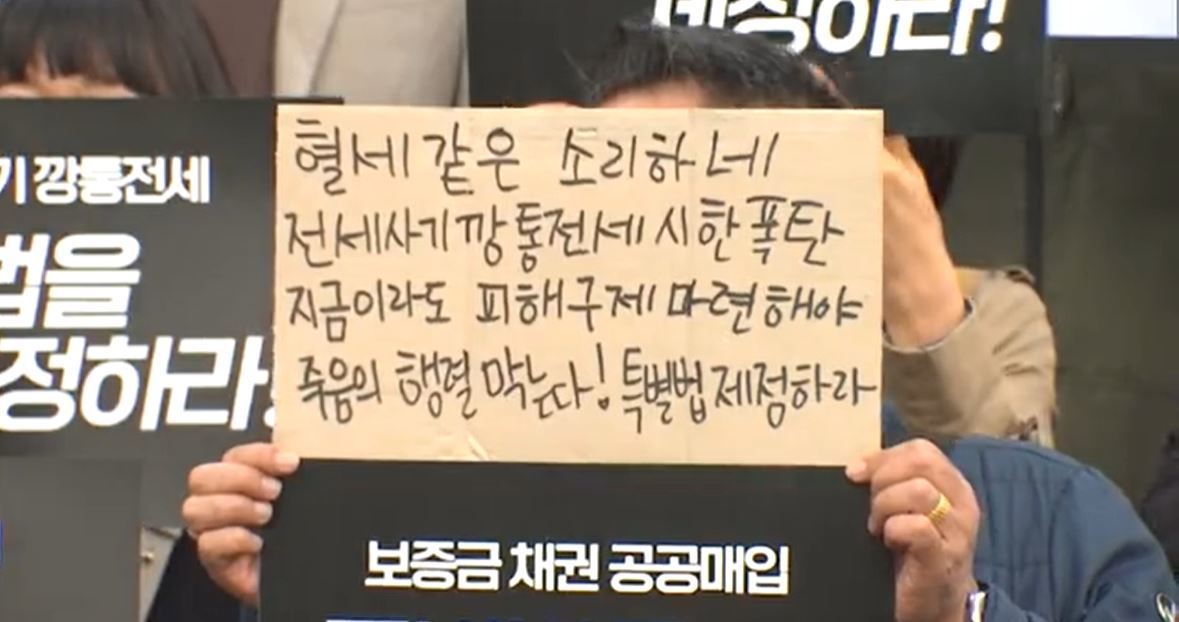 제정하라!
기 깡통전세
법을
정하라!
혈세 같은 소리하네
전세사기 깡통전세 시한폭탄
지금이라도 피해구제 마련해야
죽음의 행렬 막는다! 특별법 제정하라
보증금 채권 공공매입